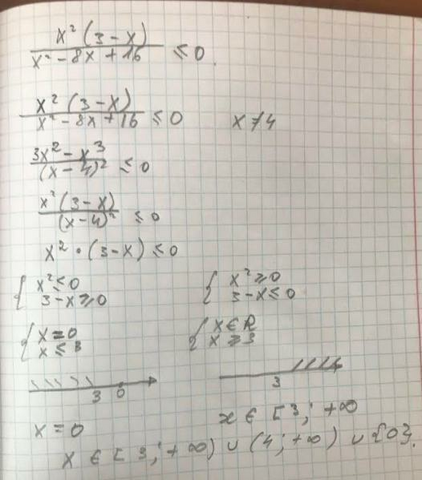 x²(3-x)/(x²-8x+16) ≤ 0
x²(3-x)/(x²-8x+16) ≤ 0 x≠4
(3x²-x³)/(x-4)² ≤ 0
x²(3-x)/(x-4)² ≤ 0
x² · (3-x) ≤ 0
{ x² ≤ 0 { x² ≥ 0
3-x ≥ 0 3-x ≤ 0
{ x = 0 { x ∈ R
x ≤ 3 x ≥ 3
3 0 3
x = 0 x ∈ [3; +∞
x ∈ [3; +∞) ∪ (4; +∞) ∪ {0}.